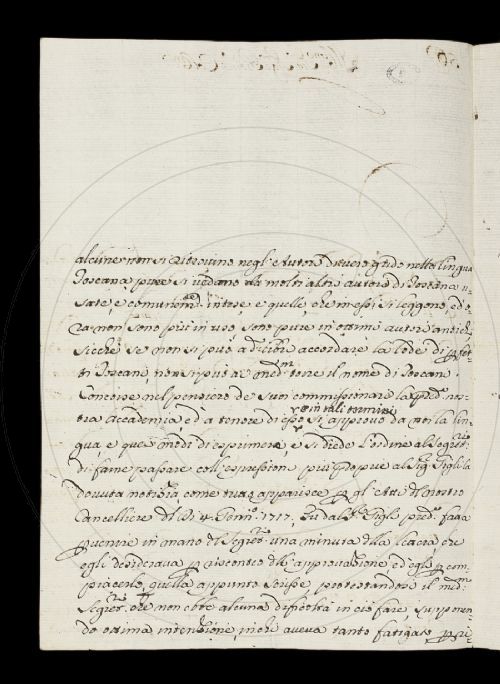 alcune non si ritrovino negl'Autori di nella lingua
Toscana pure si vedano da molti altri autori di Toscana u-
sate, e comunem.te intese, e quelle, che in essi si leggono, ed o-
ra non sono più in uso sono pure in ottimi autori antichi,
sicché se non si può a' libri accordare la lode di perfet-
ti Toscani, non si può a' med.mi torre il nome di Toscani.
Concorse nel pensiero de' suoi commissionarj la pred.a nos-
tra Accademia ed à tenore di esso
con tali termini
si approvò da noi la lin-
gua e quei modi di esprimere, e si diede l'ordine al Segret.o
di farne passare coll'espressioni più proprie al Sig.r Gigli la
dovuta notizia, come tutto apparisce per gl'Atti del nostro
Cancelliere del Dì 4. Genn.o 1717. Fu dal S.r Gigli pred.o fatta
pervenire in mano del Segret.o una minuta della licenza, che
egli desiderava per riscontro dell'approvazione, ed egli per com-
piacerlo, quella appunto scrisse, protestandosi il med.mo
Segret.o che non ebbe alcuna difficoltà in ciò fare, supponen-
do ottima intenzione, in chi aveva tanto fatigato,